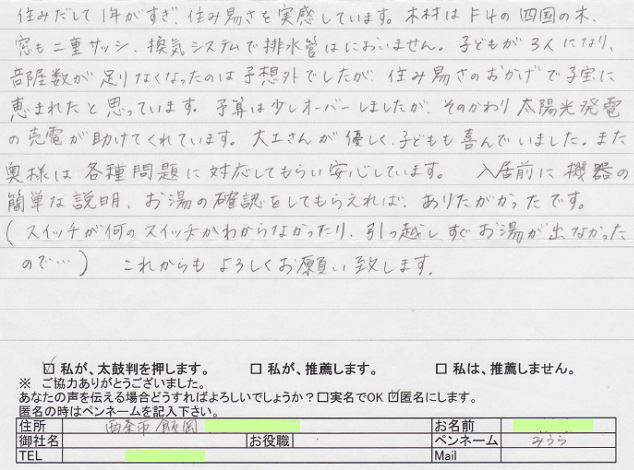 住みだして1年がすぎ、住み易さを実感しています。木材はF4の四国の木、
窓も二重サッシ、換気システムで排水管はにおいません。子どもが3人になり、
部屋数が足りなくなったのは予想外でしたが、住み易さのおかげで子宝に
恵まれたと思っています。予算は少しオーバーしましたが、そのかわり太陽光発電
の売電が助けてくれています。大工さんが優しく、子どもも喜んでいました。また
奥様は各種問題に対応してもらい安心しています。 入居前に機器の
簡単な説明、お湯の確認をしてもらえれば、ありたがかったです。
(スイッチが何のスイッチかわからなかったり、引っ越しすぐお湯が出なかった
ので…) これからもよろしくお願い致します。
☑私が、太鼓判を押します。 □私が、推薦します。 □私は、推薦しません。
※ ご協力ありがとうございました。
あなたの声を伝える場合どうすればよろしいでしょうか?□実名でOK ☑匿名にします。
匿名の時はペンネームを記入下さい。
住所 西条市飯岡 お名前
御社名 お役職 ペンネーム みうら
TEL Mail